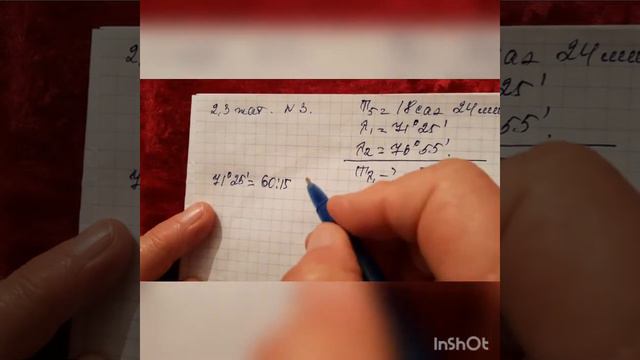 2,3 жат. N 3.
T5 = 18 саг 24 мин
λ1 = 71° 25'
λ2 = 76° 55'.
71° 25' = 60:15
Tλ1 -
InShOt